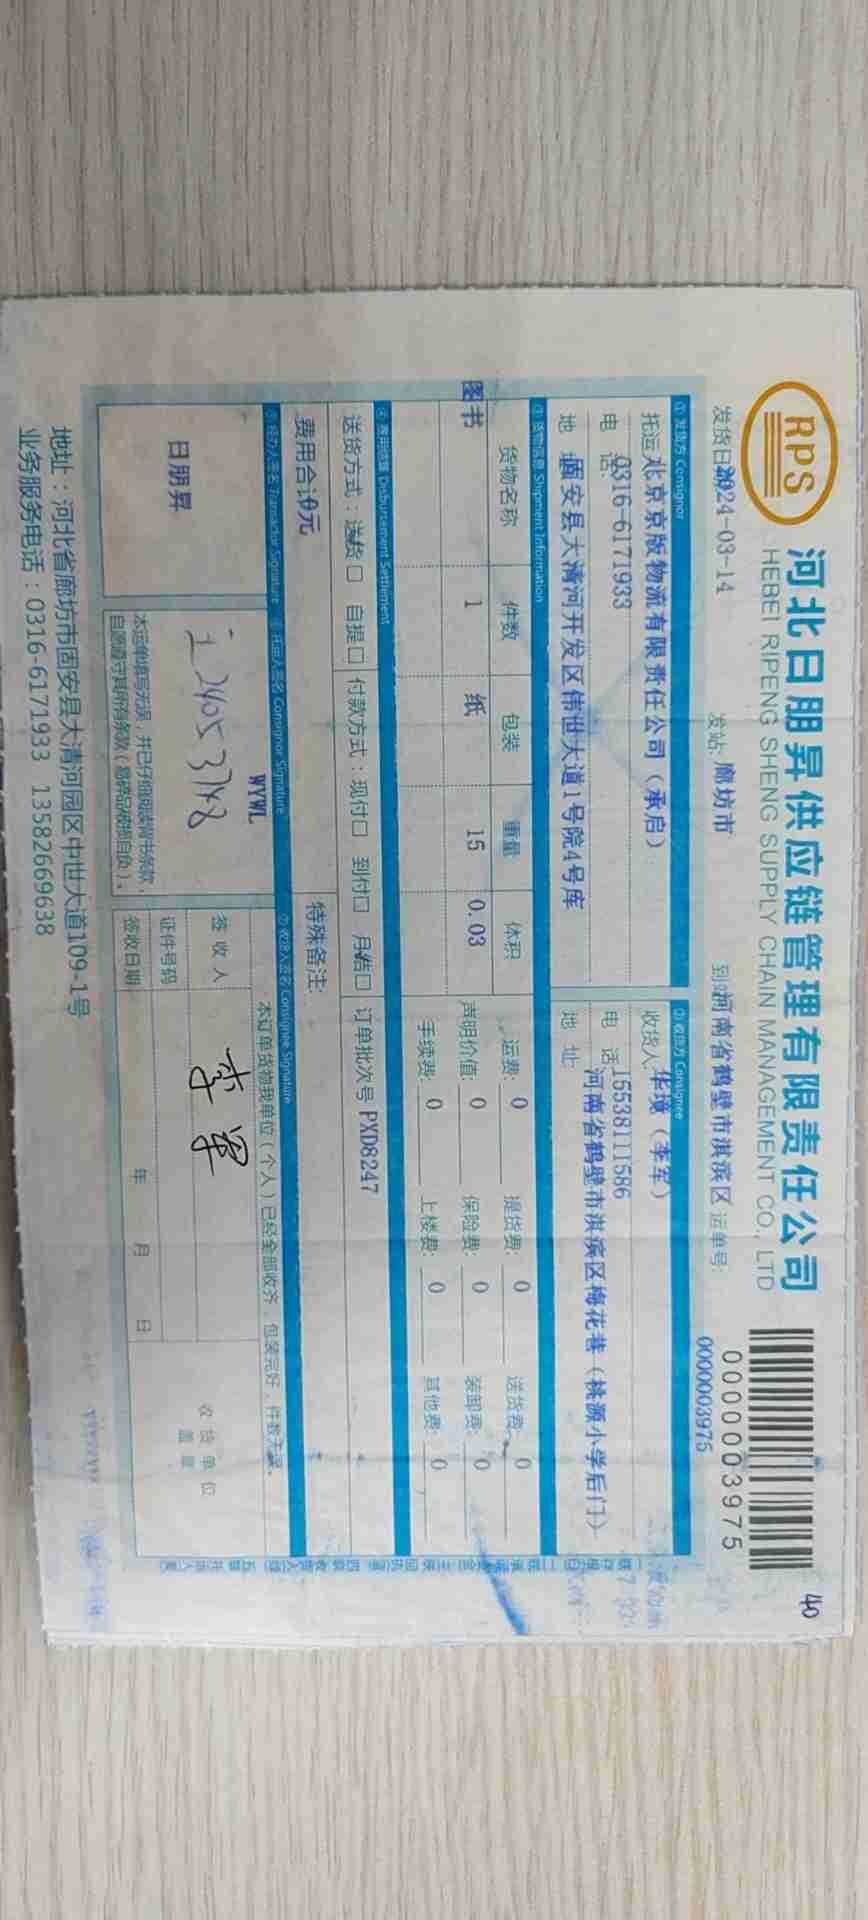 RPS
河北日朋昇供应链管理有限责任公司
HEBEI RIPENG SHENG SUPPLY CHAIN MANAGEMENT CO., LTD
0000003975
40
发货日 2024-03-14 发站: 廊坊市 到站 河南省鹤壁市淇滨区 运单号: 0000003975
① 发货方 Consignor
托运 北京京版物流有限责任公司（承启）
电话: 0316-6171933
地 固安县大清河开发区伟世大道1号院4号库
② 收货方 Consignee
收货人 华境（李军）
电 话 15538111586
地 址: 河南省鹤壁市淇滨区梅花巷（桃源小学后门）
③ 货物信息 Shipment Information
货物名称 件数 包装 重量 体积
图书 1 纸 15 0.03
运费: 0 提货费: 0 送货费: 0
声明价值: 0 保险费: 0 装卸费: 0
手续费: 0 上楼费: 0 其他费: 0
④ 费用结算 Disbursement Settlement
送货方式: 送货□ 自提□ 付款方式: 现付□ 到付□ 月结□ 订单批次号 PXD8247
费用合计0元
特殊备注:
⑤ 经办人签名 Transactor Signature
日朋昇
⑥ 托运人签名 Consignor Signature
WYWL
本运单填写无误，并已仔细阅读背书条款，
自愿遵守其所有条款（易碎品破损自负）。
⑦ 收货人签名 Consignee Signature
本订单货物我单位（个人）已经全部收齐，包装完好，件数无误。
签 收 人 李军
证件号码
签收日期 年 月 日
收 货 单 位
盖 章
地址：河北省廊坊市固安县大清河园区中世大道109-1号
业务服务电话：0316-6171933 13582669638